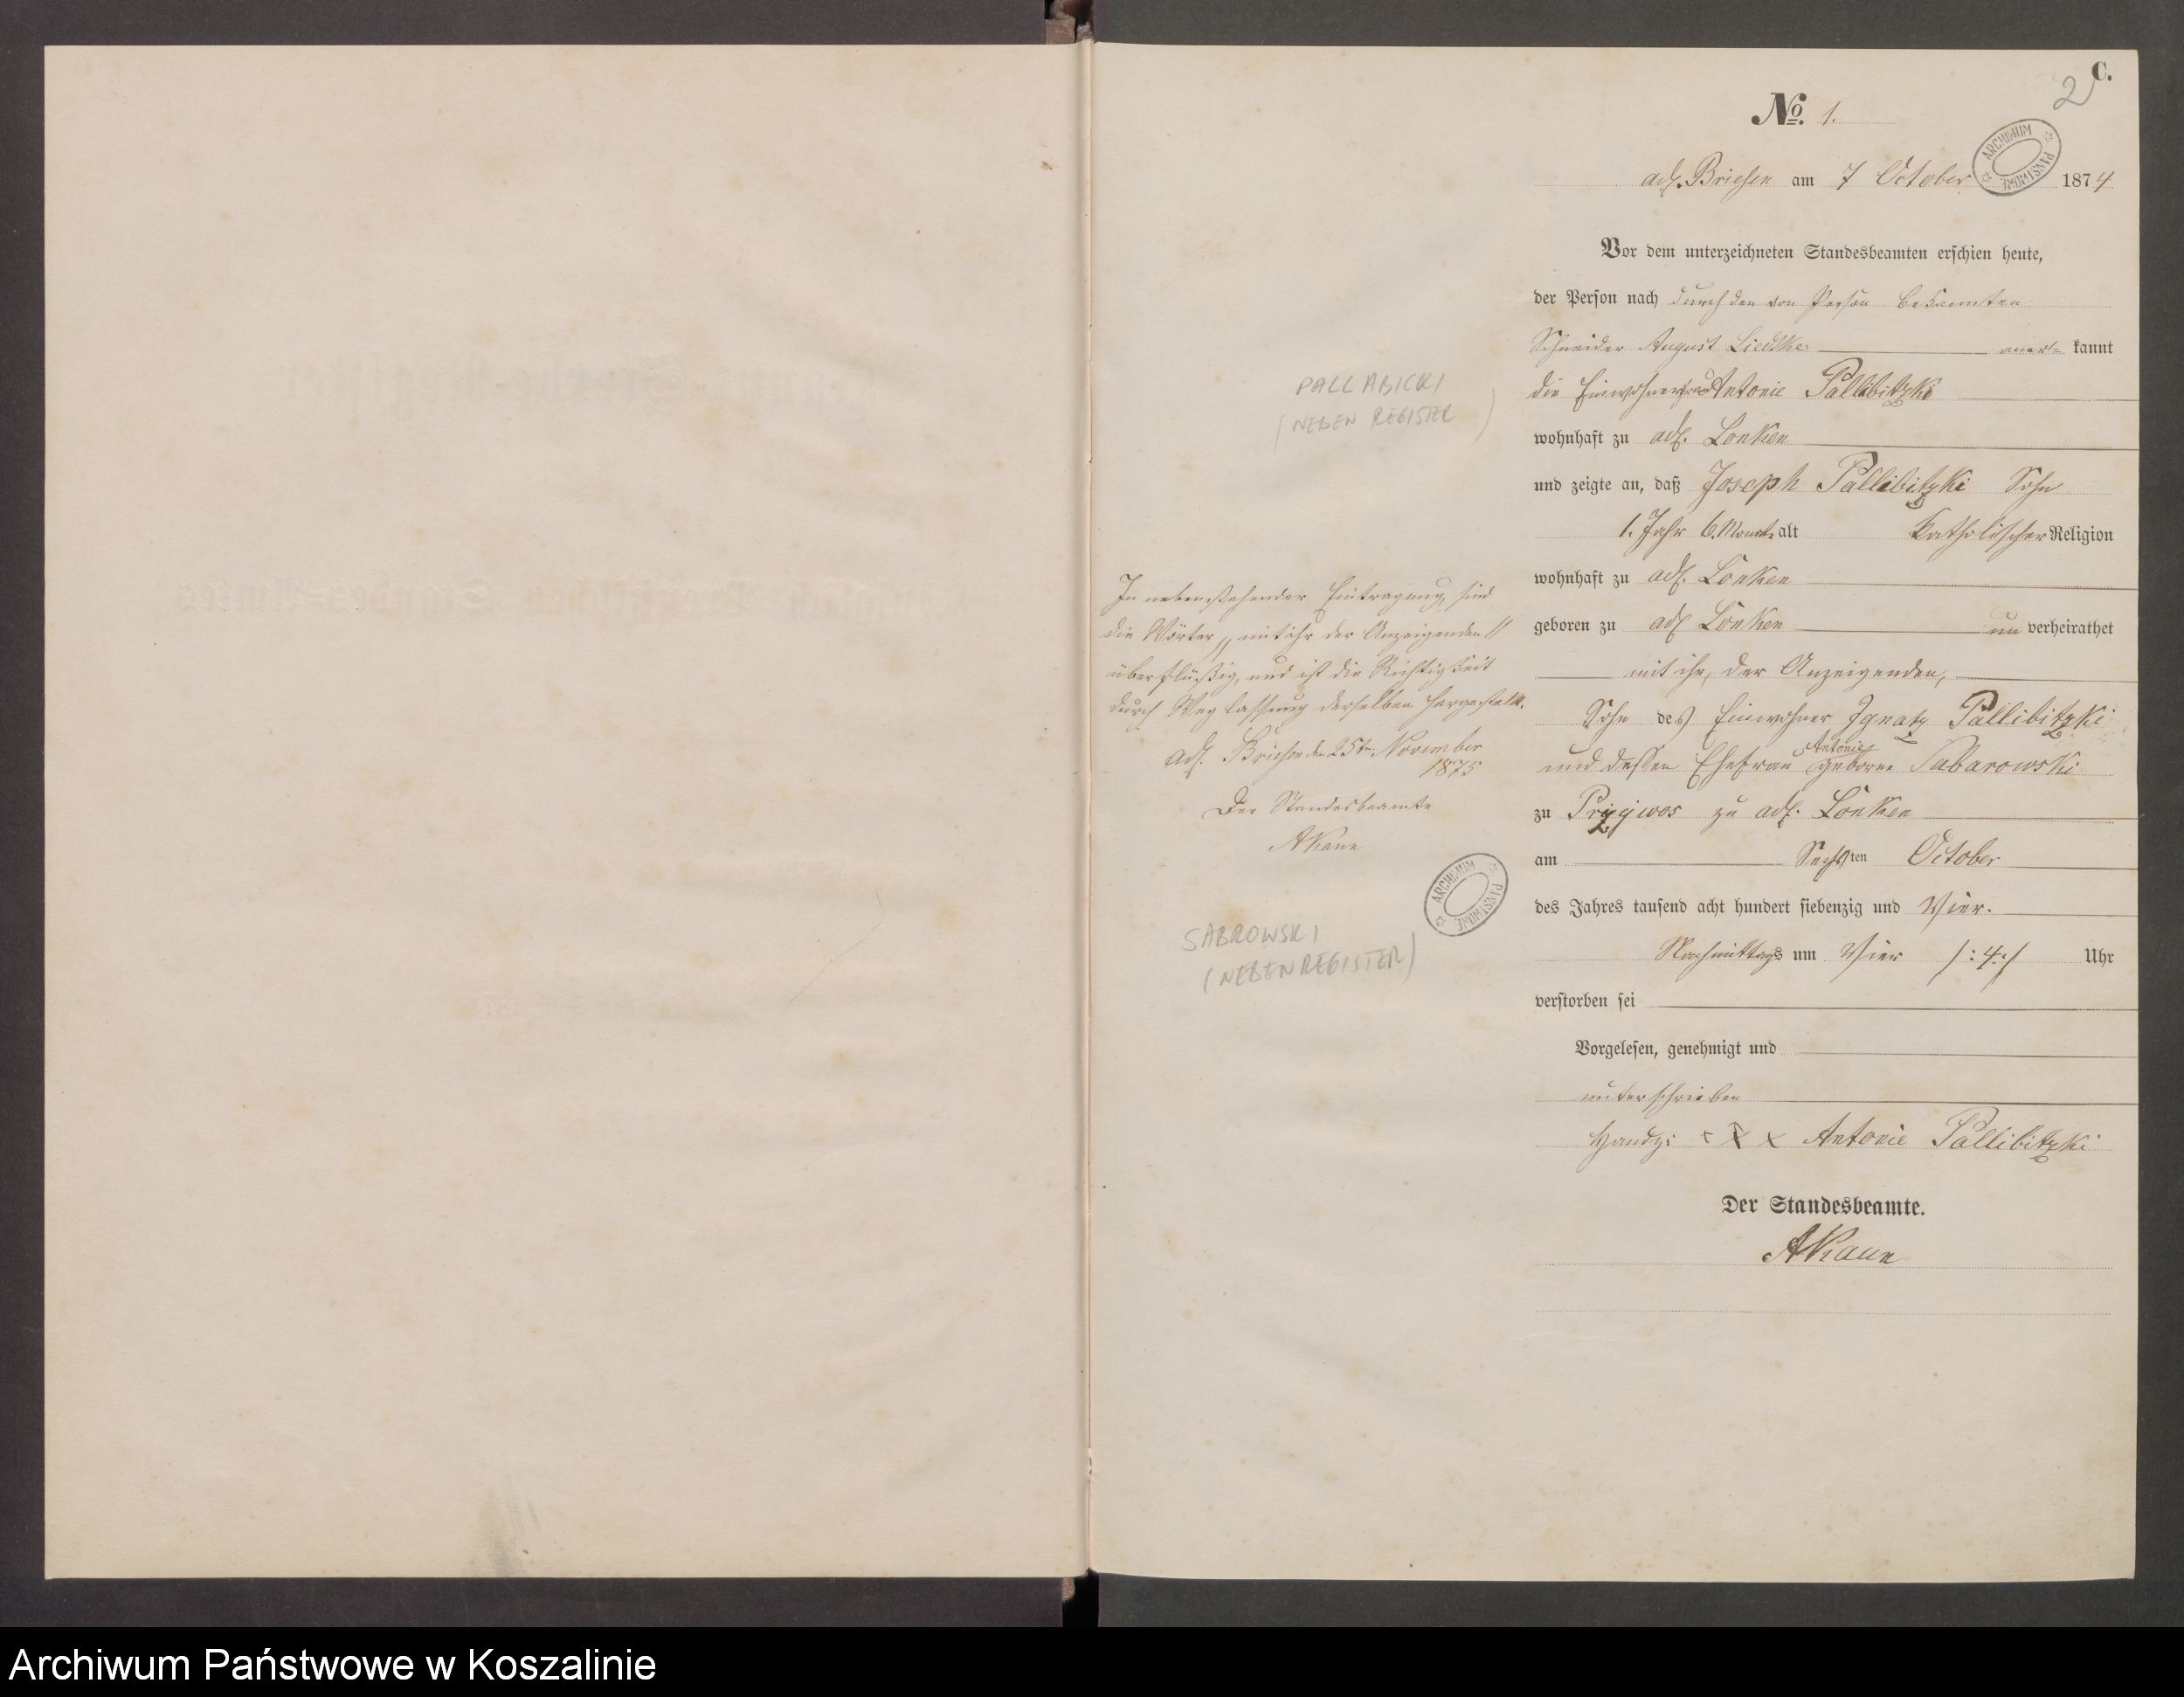 C.
2
No. 1.
ARCHIWUM PAŃSTWOWE
adl. Briesen am 7 October 1874
Vor dem unterzeichneten Standesbeamten erschien heute,
der Person nach durch den von Person bekannten
Schneider August Liedtke aner= kannt
die Einwohnerfrau Antonie Pallibitzki
wohnhaft zu adl. Lonken
und zeigte an, daß Joseph Pallibitzki Sohn
1. Jahr 6. Monate alt katholischer Religion
wohnhaft zu adl. Lonken
geboren zu adl Lonken un verheirathet
mit ihr, der Anzeigenden,
Sohn des Einwohner Ignatz Pallibitzki
und dessen Ehefrau Antonie geborne Sabarowski
zu adl. Lonken
am Sechsten October
des Jahres tausend acht hundert siebenzig und Vier.
Nachmittags um Vier /:4:/ Uhr
verstorben sei
Vorgelesen, genehmigt und
unterschrieben
Handz: x x x Antonie Pallibitzki
Der Standesbeamte.
AKaun
PALLABICKI
(NEBEN REGISTER)
In nebenstehender Eintragung, sind
die Wörter „mit ihr der Anzeigenden"
überflüßig, und ist die Richtigkeit
durch Weglassung derselben hergestellt.
adl. Briesen den 25ten November
1875
Der Standesbeamte
AKaun
ARCHIWUM PAŃSTWOWE
SABROWSKI
(NEBENREGISTER)
Archiwum Państwowe w Koszalinie